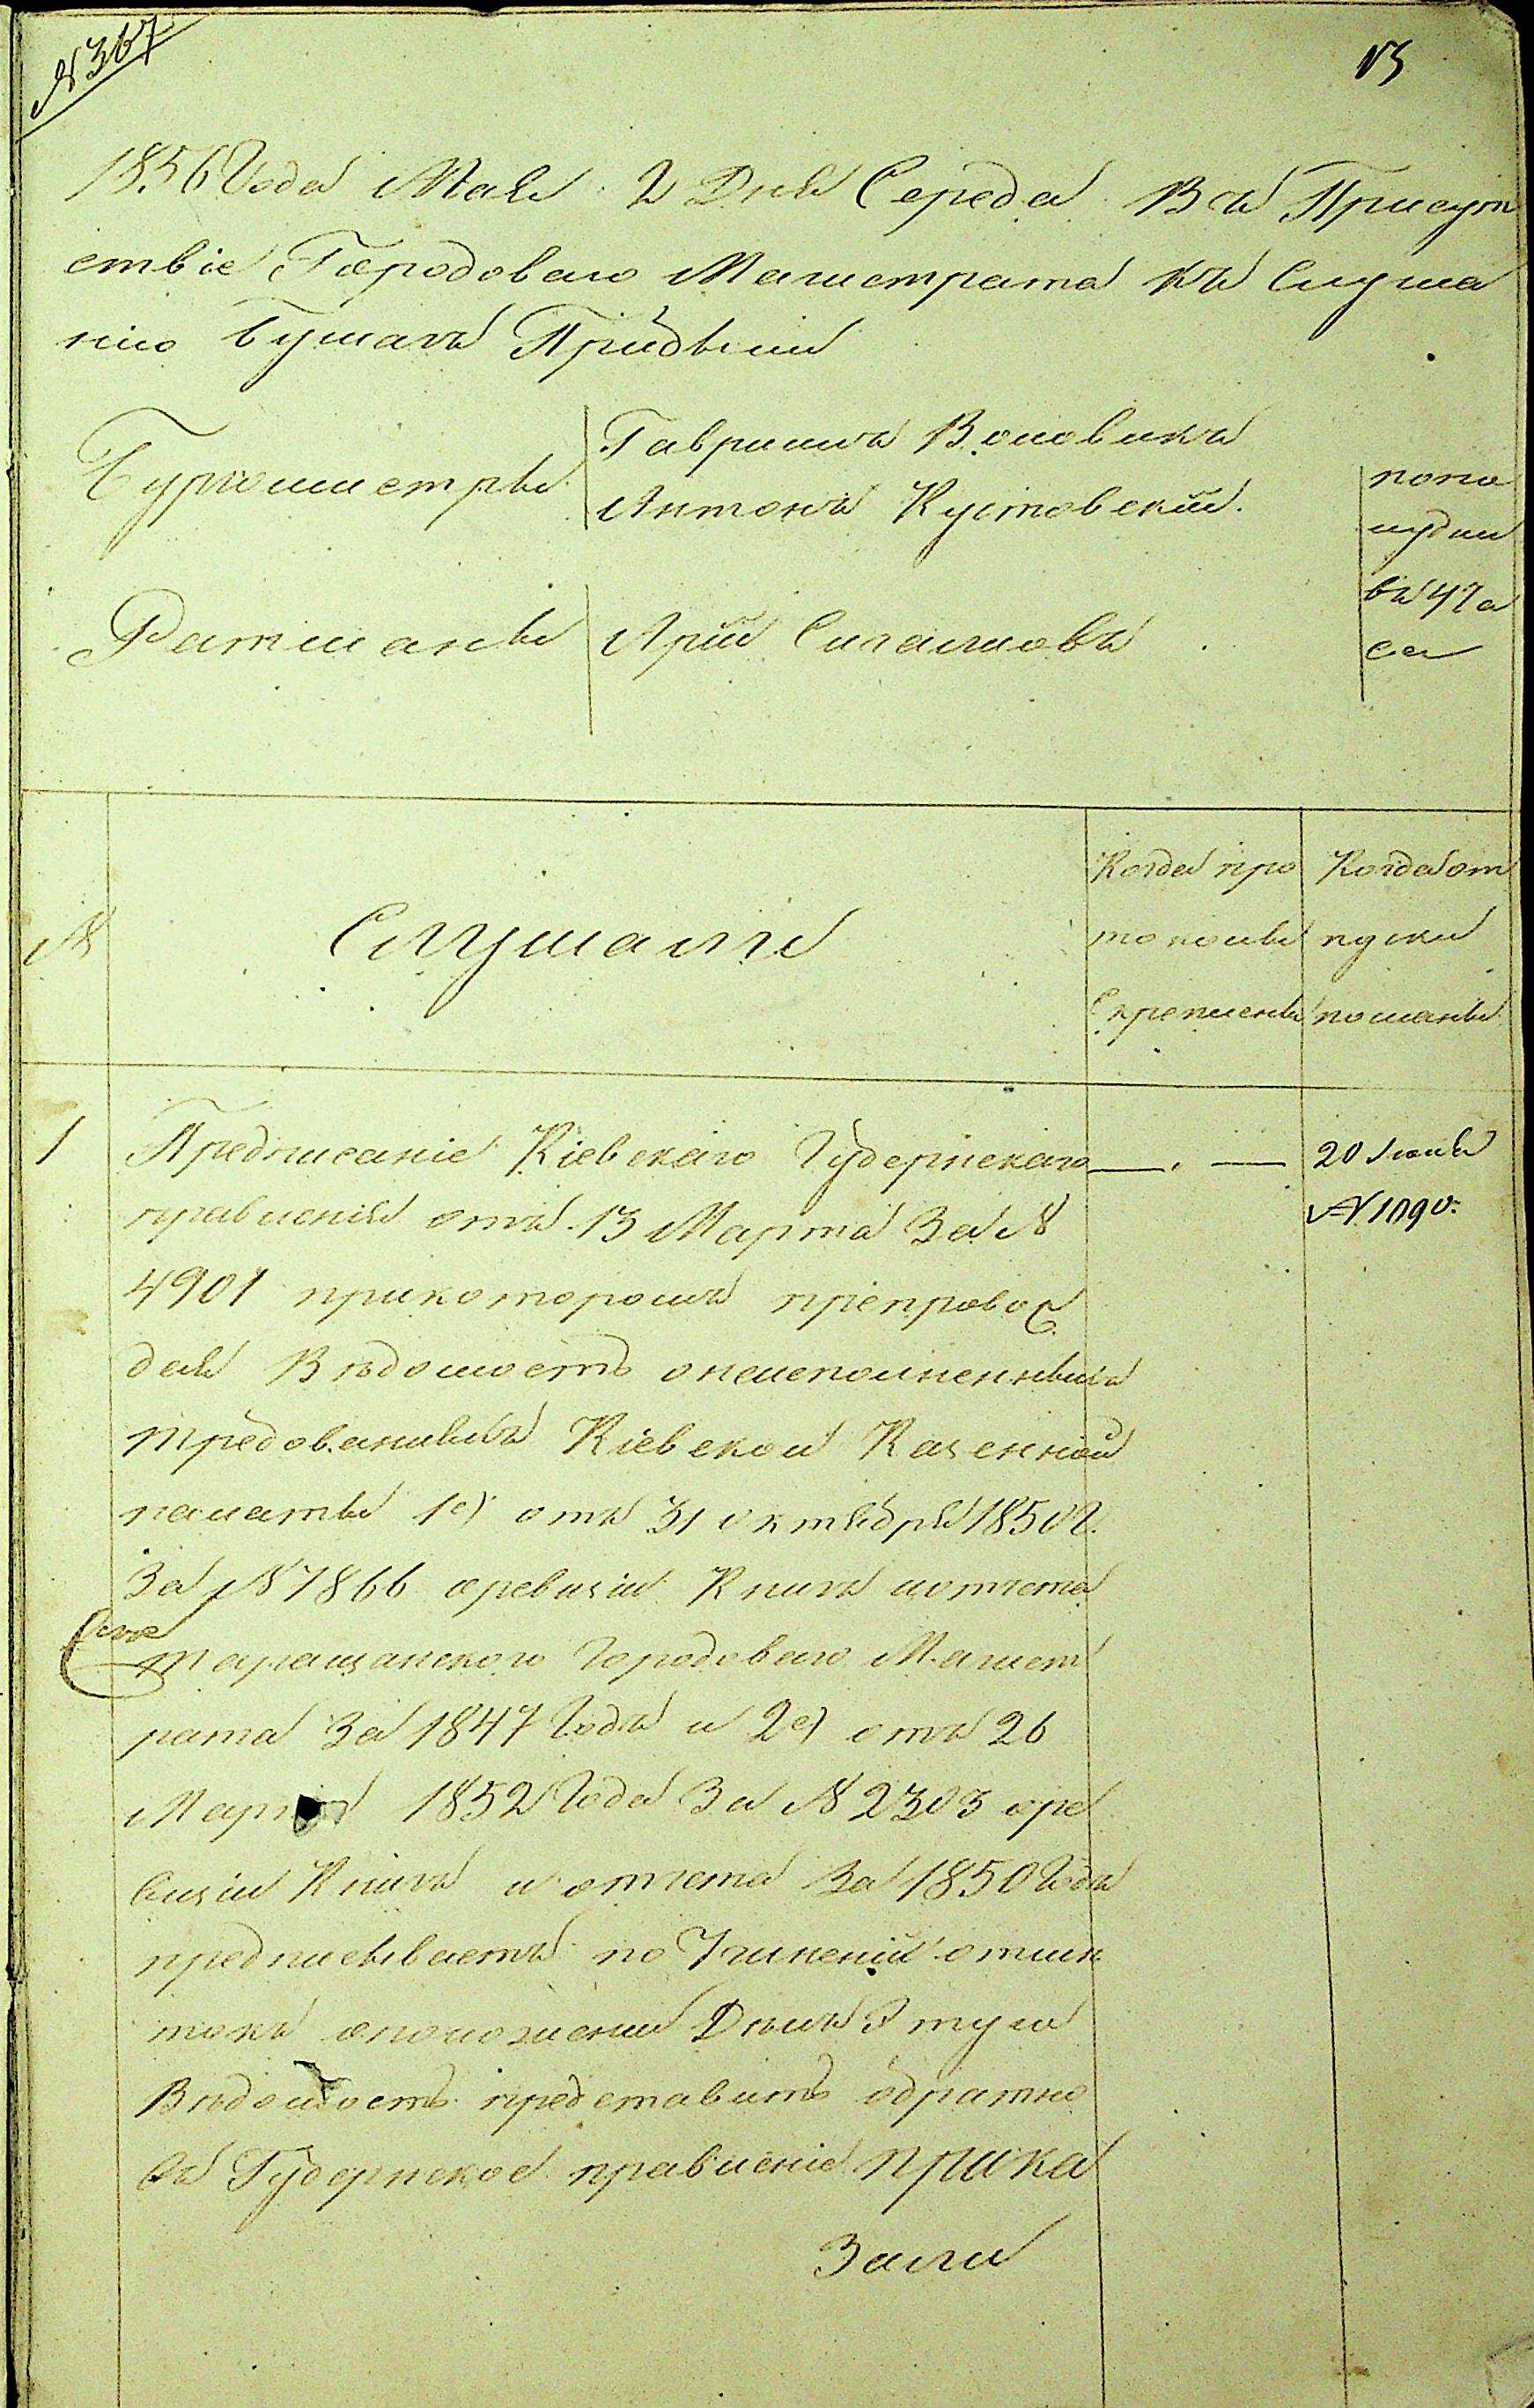 № 367
13
1856 Года Мая 2 Дня Середа Въ Присут
ствіе Городоваго Магистрата къ Слуша
нію бумагъ Прибыли
Бургомистры
Гаврилъ Воловикъ
Антонъ Кустовский.
Ратманъ
попо
лудни
въ 4 ча
са
№
Слушали
Когда про
токолы
Скреплены
Когда от
пуски
посланы
1
Предписаніе Кіевскаго Губернскаго
правленія отъ 13 Марта За №
4901 прикоторомъ препровож
дая Вѣдомость онеисполненныхъ
требованияхъ Кіевской Казенной
палаты 1е) отъ 31 октября 1850 г.
За № 7866 оревизіи Книгъ иотчета
Таращанского Городоваго Магист
рата За 1847 Годъ и 2е) отъ 26
Марта 1852 Года За № 2303 оре
визіи Книгъ и отчета За 1850 Годъ
предписываетъ по Учиненіи отмѣ
токъ оположении Дѣлъ Эту
Вѣдомость представить обратно
въ Губернское правленіе прика
Зали
20 Іюня
№ 1090.